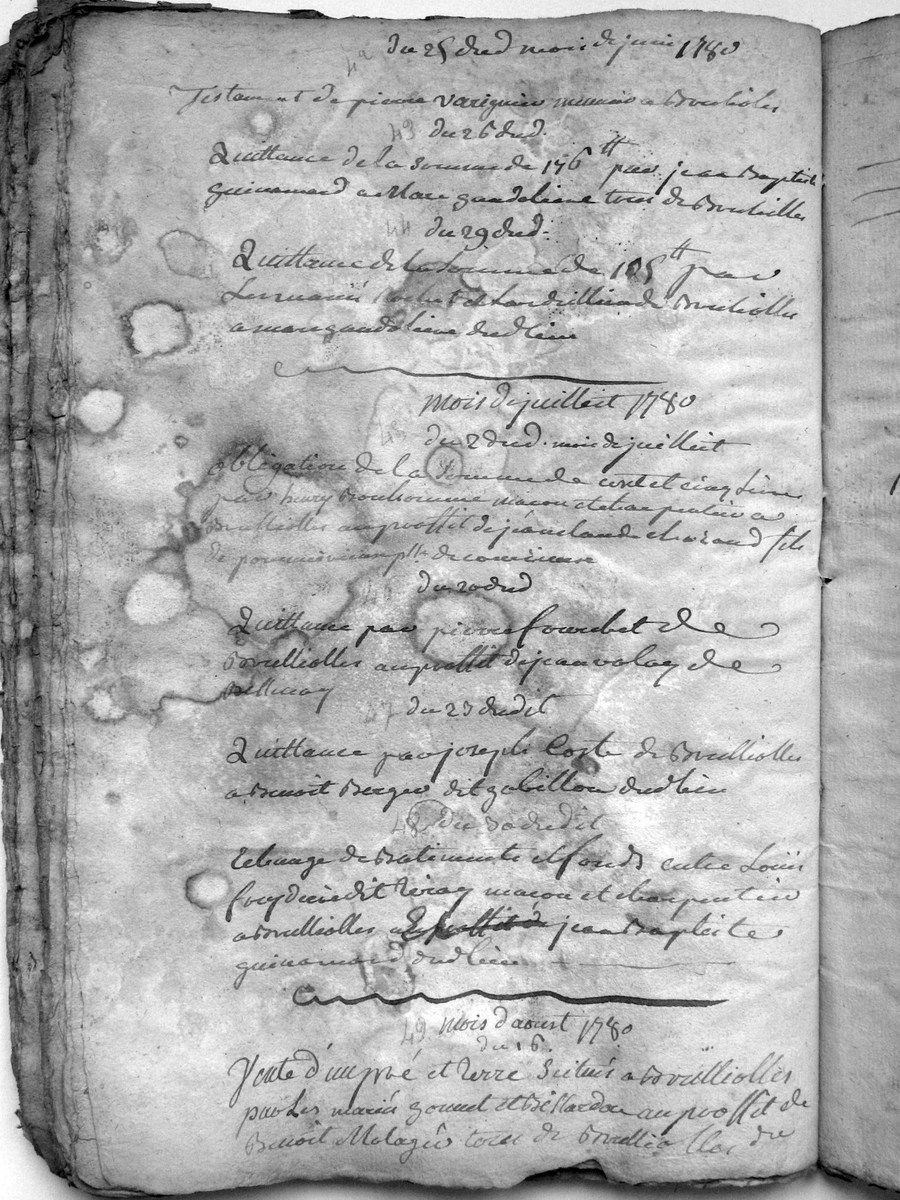 42 du 25 dud mois de juin 1780
Testament de pierre Varignier munier a Brulioles
43 du 26 dud.
Quittance de la somme de 176 tt par jean Baptiste
guinamard a Marc gaudeliere tous de Brulioles
44 du 29 dud.
Quittance de la somme de 105 tt par
Les mariés et de Brulioles
a marc gaudeliere dud lieu
mois de juilleit 1780
du 2 dud. mois de juilleit
obligation de la somme de cent et cinq livres
par henry Bonhomme macon et charpentier a
Brullioles au proffit de jean claude fils
de
46 du 20 dud
Quittance par pierre fourchet de
Brullioles au proffit de jean valoy de
Bessenay
47 du 23 dudit
Quittance par joseph Coste de Brullioles
a Benoit Berger dit gobillon dud lieu
48 du 30 dudit
Echange de Batiments et fonds entre Loüis
dit macon et charpentier
a Brullioles et jean Baptiste
guinamard dud lieu
49 mois d'aoust 1780
du 16.
Vente d'un pré et terre scitués a Brullioles
par Les mariés gonnet et au proffit de
Benoit tous de Brullioles du